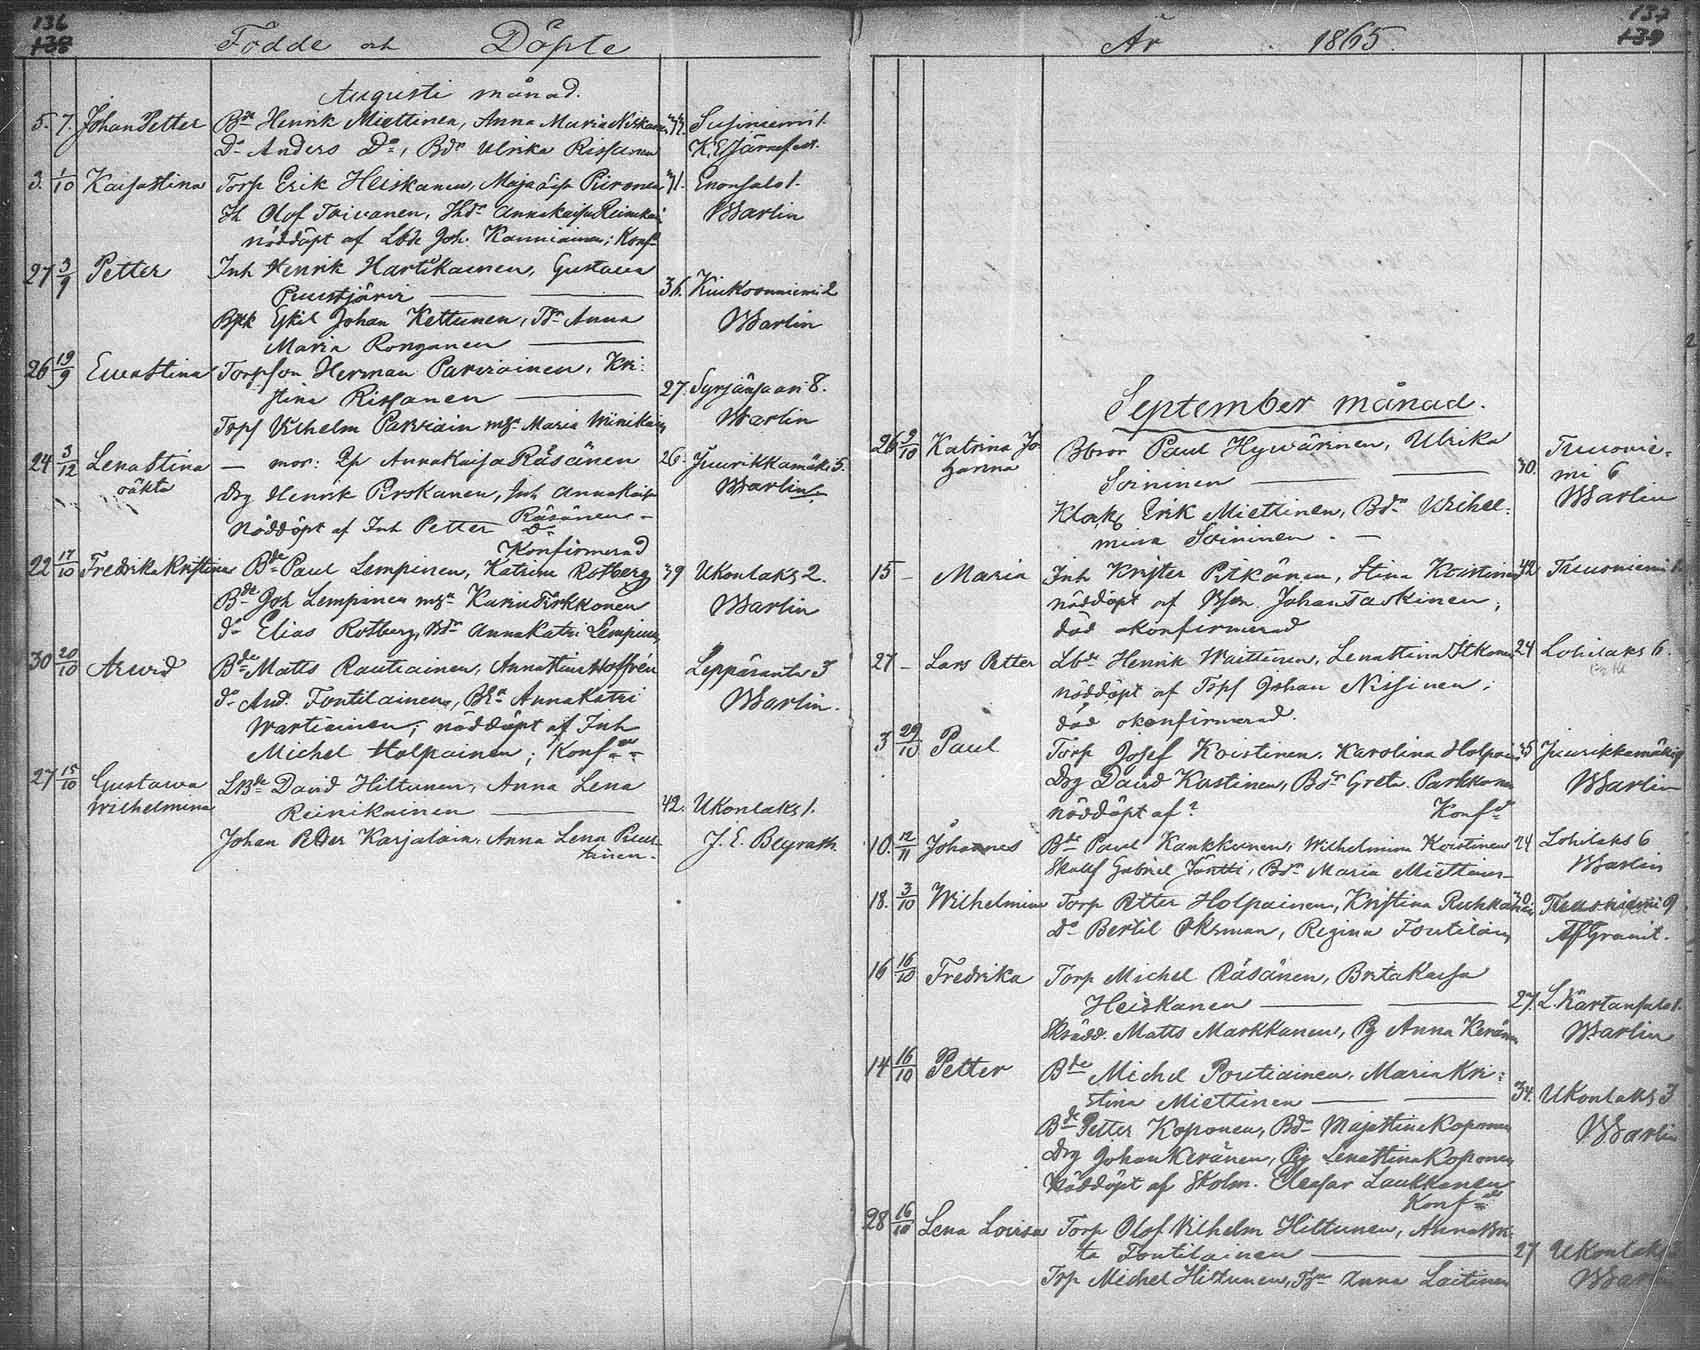 136
138
Födde och Döpte
Augusti månad.
5. 7. Johan Petter Bde Henrik Miettinen, Anna Maria Niskanen 37. Susiniemi 1.
Do Anders Do, Bdr Ulrika Rissanen K. E. Järnefelt.
3. 1/10 Kaisa Stina Torp Erik Heiskanen, Maja Caisa Piironen 31. Enonsalo 1.
Jh Olof Toivanen, Jhdr Anna Kaisa Reinikain Warlin
nöddöpt af Lbde Joh. Kanniainen; Konf.
27 3/9 Petter Inh Henrik Hartikainen, Gustava
Puustjärvi 36. Kiukoonniemi 2
Bptk Eskil Johan Kettunen, Tdr Anna Warlin
Maria Ronganen
26 19/9 Eva Stina Torpson Herman Parviainen, Kri-
stina Rissanen 27. Syrjänsaari 8.
Torpf Vilhelm Parviain msr Maria Miinikain Warlin
24 3/12 Lena Stina mor: Pp Anna Kaisa Räsänen 26. Juurikkamäki 5.
oäkta Drg Henrik Pirskanen, Inh Anna Kaisa Warlin
Räsänen
Nöddöpt af Inh Petter Do
Konfirmerad
22 17/10 Fredrika Kristina Bde Paul Lempinen, Katrina Rotberg 39 Ukonlaks 2.
Bde Joh Lempinen msr Karin Pirkkonen Warlin
do Elias Rotberg, Bdr Anna Katri Lempinen
30 20/10 Arvid Bde Matts Rautiainen, Anna Stina Hoffrén Leppäranta 3
do And. Fontilainen, Bdr Anna Katri Warlin.
Wartiainen; nöddöpt af Inh
Michel Holpainen; Konf.
27 15/10 Gustava LBde David Hiltunen, Anna Lena
Wilhelmina Reinikainen 42. Ukonlaks 1.
Johan Petter Karjalain, Anna Lena Puus- J. E. Bergrath
tinen.
137
139
År 1865.
September månad.
26 9/10 Katrina Jo- Bbror Paul Hyvärinen, Ulrika Tuusnie-
hanna Soininen 30. mi 6
Klock Erik Miettinen, Bdr Vilhel- Warlin
mina Soininen.
15 – Maria Inh Krister Pitkänen, Stina Koistinen 42 Tuusniemi 1.
nöddöpt af Bson Johan Taskinen,
död okonfirmerad
27 – Lars Petter Lbde Henrik Waittinen, Lena Stina Itkonen 24 Lohilaks 6.
nöddöpt af Tspf Johan Nissinen;
död okonfirmerad.
3 29/10 Paul Torp Josef Koistinen, Karolina Holpain 45 Juurikkamäki 9
Drg David Kastinen, Bdr Greta Parkkonen Warlin
nöddöpt af? Konf.
10. 12/11 Johannes Bde Paul Kankkunen, Wilhelmina Koistinen 24 Lohilaks 6
Skallf Gabriel Jäntti, Bdr Maria Miettinen Warlin
18. 3/10 Wilhelmina Torp Petter Holpainen, Kristina Ruhkanen 30. Tuusniemi 9
Do Bertil Oksman, Regina Fontilain Af Granit.
16 16/10 Fredrika Torp Michel Räsänen, Brita Kaisa
Heiskanen 27. L. Kärtansalo 1.
Skrädd. Matts Markkanen, Pg Anna Keränen Warlin
14 16/10 Petter Bde Michel Poutiainen, Maria Kri-
stina Miettinen 34. Ukonlaks 3
Bde Petter Koponen, Bdr Maja Stina Koponen Warlin
Drg Johan Keränen, Pig Lena Stina Koponen
Nöddöpt af Skolm. Eleasar Laukkanen
Konf.
28 16/10 Lena Lovisa Torp Olof Vilhelm Hiltunen, Anna Bri-
ta Fontilainen 27 Ukonlaks
Torp Michel Hiltunen, Anna Laitinen Warlin